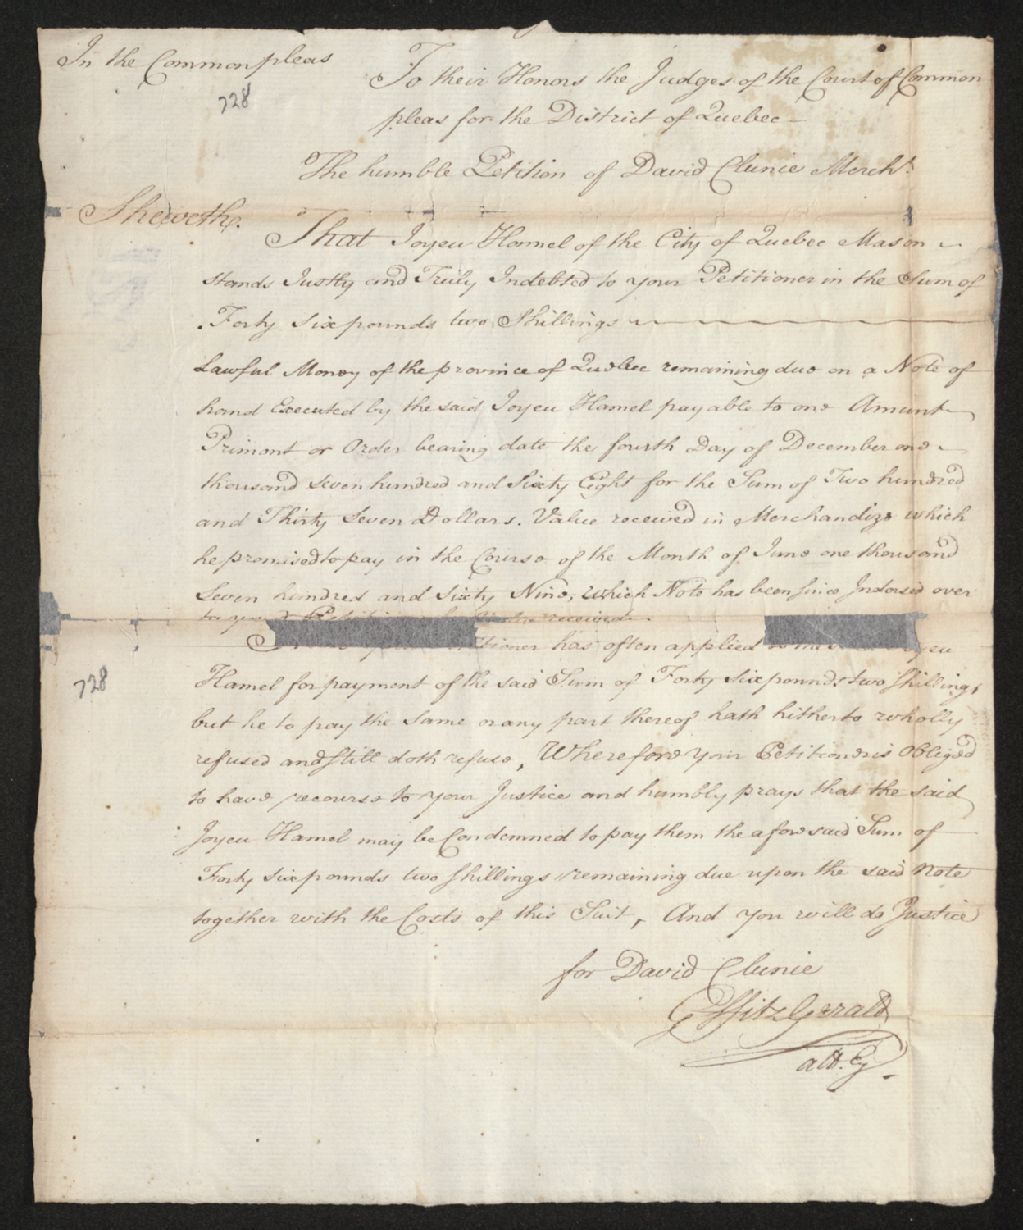 In the Common pleas
728
To their Honors the Judges of the Court of Common
pleas for the District of Quebec
The humble Petition of David Clunie Mercht
Sheweth
That Joyeu Hamel of the City of Quebec Mason
Stands Justly and Truly Indebted to your Petitioner in the Sum of
Forty six pounds two Shillings
Lawful Money of the province of Quebec remaining due on a Note of
hand Executed by the said Joyeu Hamel payable to one Amunt
Primont or Order bearing date the fourth Day of December one
thousand Seven hundred and Sixty Eight for the Sum of Two hundred
and Thirty Seven Dollars. Value received in Merchandize which
he promised to pay in the Course of the Month of June one thousand
Seven hundred and Sixty Nine, which Note has been since Indorsed over
to received
has often applied
728
Hamel for payment of the said Sum of Forty six pounds two Shillings
but he to pay the Same or any part thereof hath hitherto wholly
refused and Still doth refuse, Wherefore your Petitioner is Obliged
to have recourse to your Justice and humbly prays that the said
Joyeu Hamel may be Condemned to pay them the aforesaid Sum of
Forty six pounds two Shillings remaining due upon the said Note
together with the Costs of this Suit, And you will do Justice
for David Clunie
FitzGerald
att:y